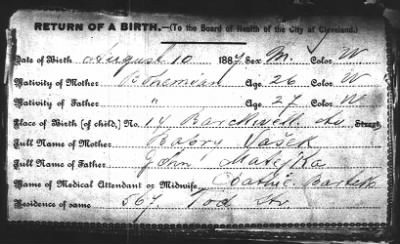 RETURN OF A BIRTH.—(To the Board of Health of the City of Cleveland.)
Date of Birth August 10 1887 Sex M. Color W
Nativity of Mother Bohemian Age, 26 Color W
Nativity of Father " Age, 27 Color W
Place of Birth [of child,] No. 14 Barckwell Av Street
Full Name of Mother Vašek
Full Name of Father John Matejka
Name of Medical Attendant or Midwife, Cathie. Bartek
Residence of same 567 Tod Str